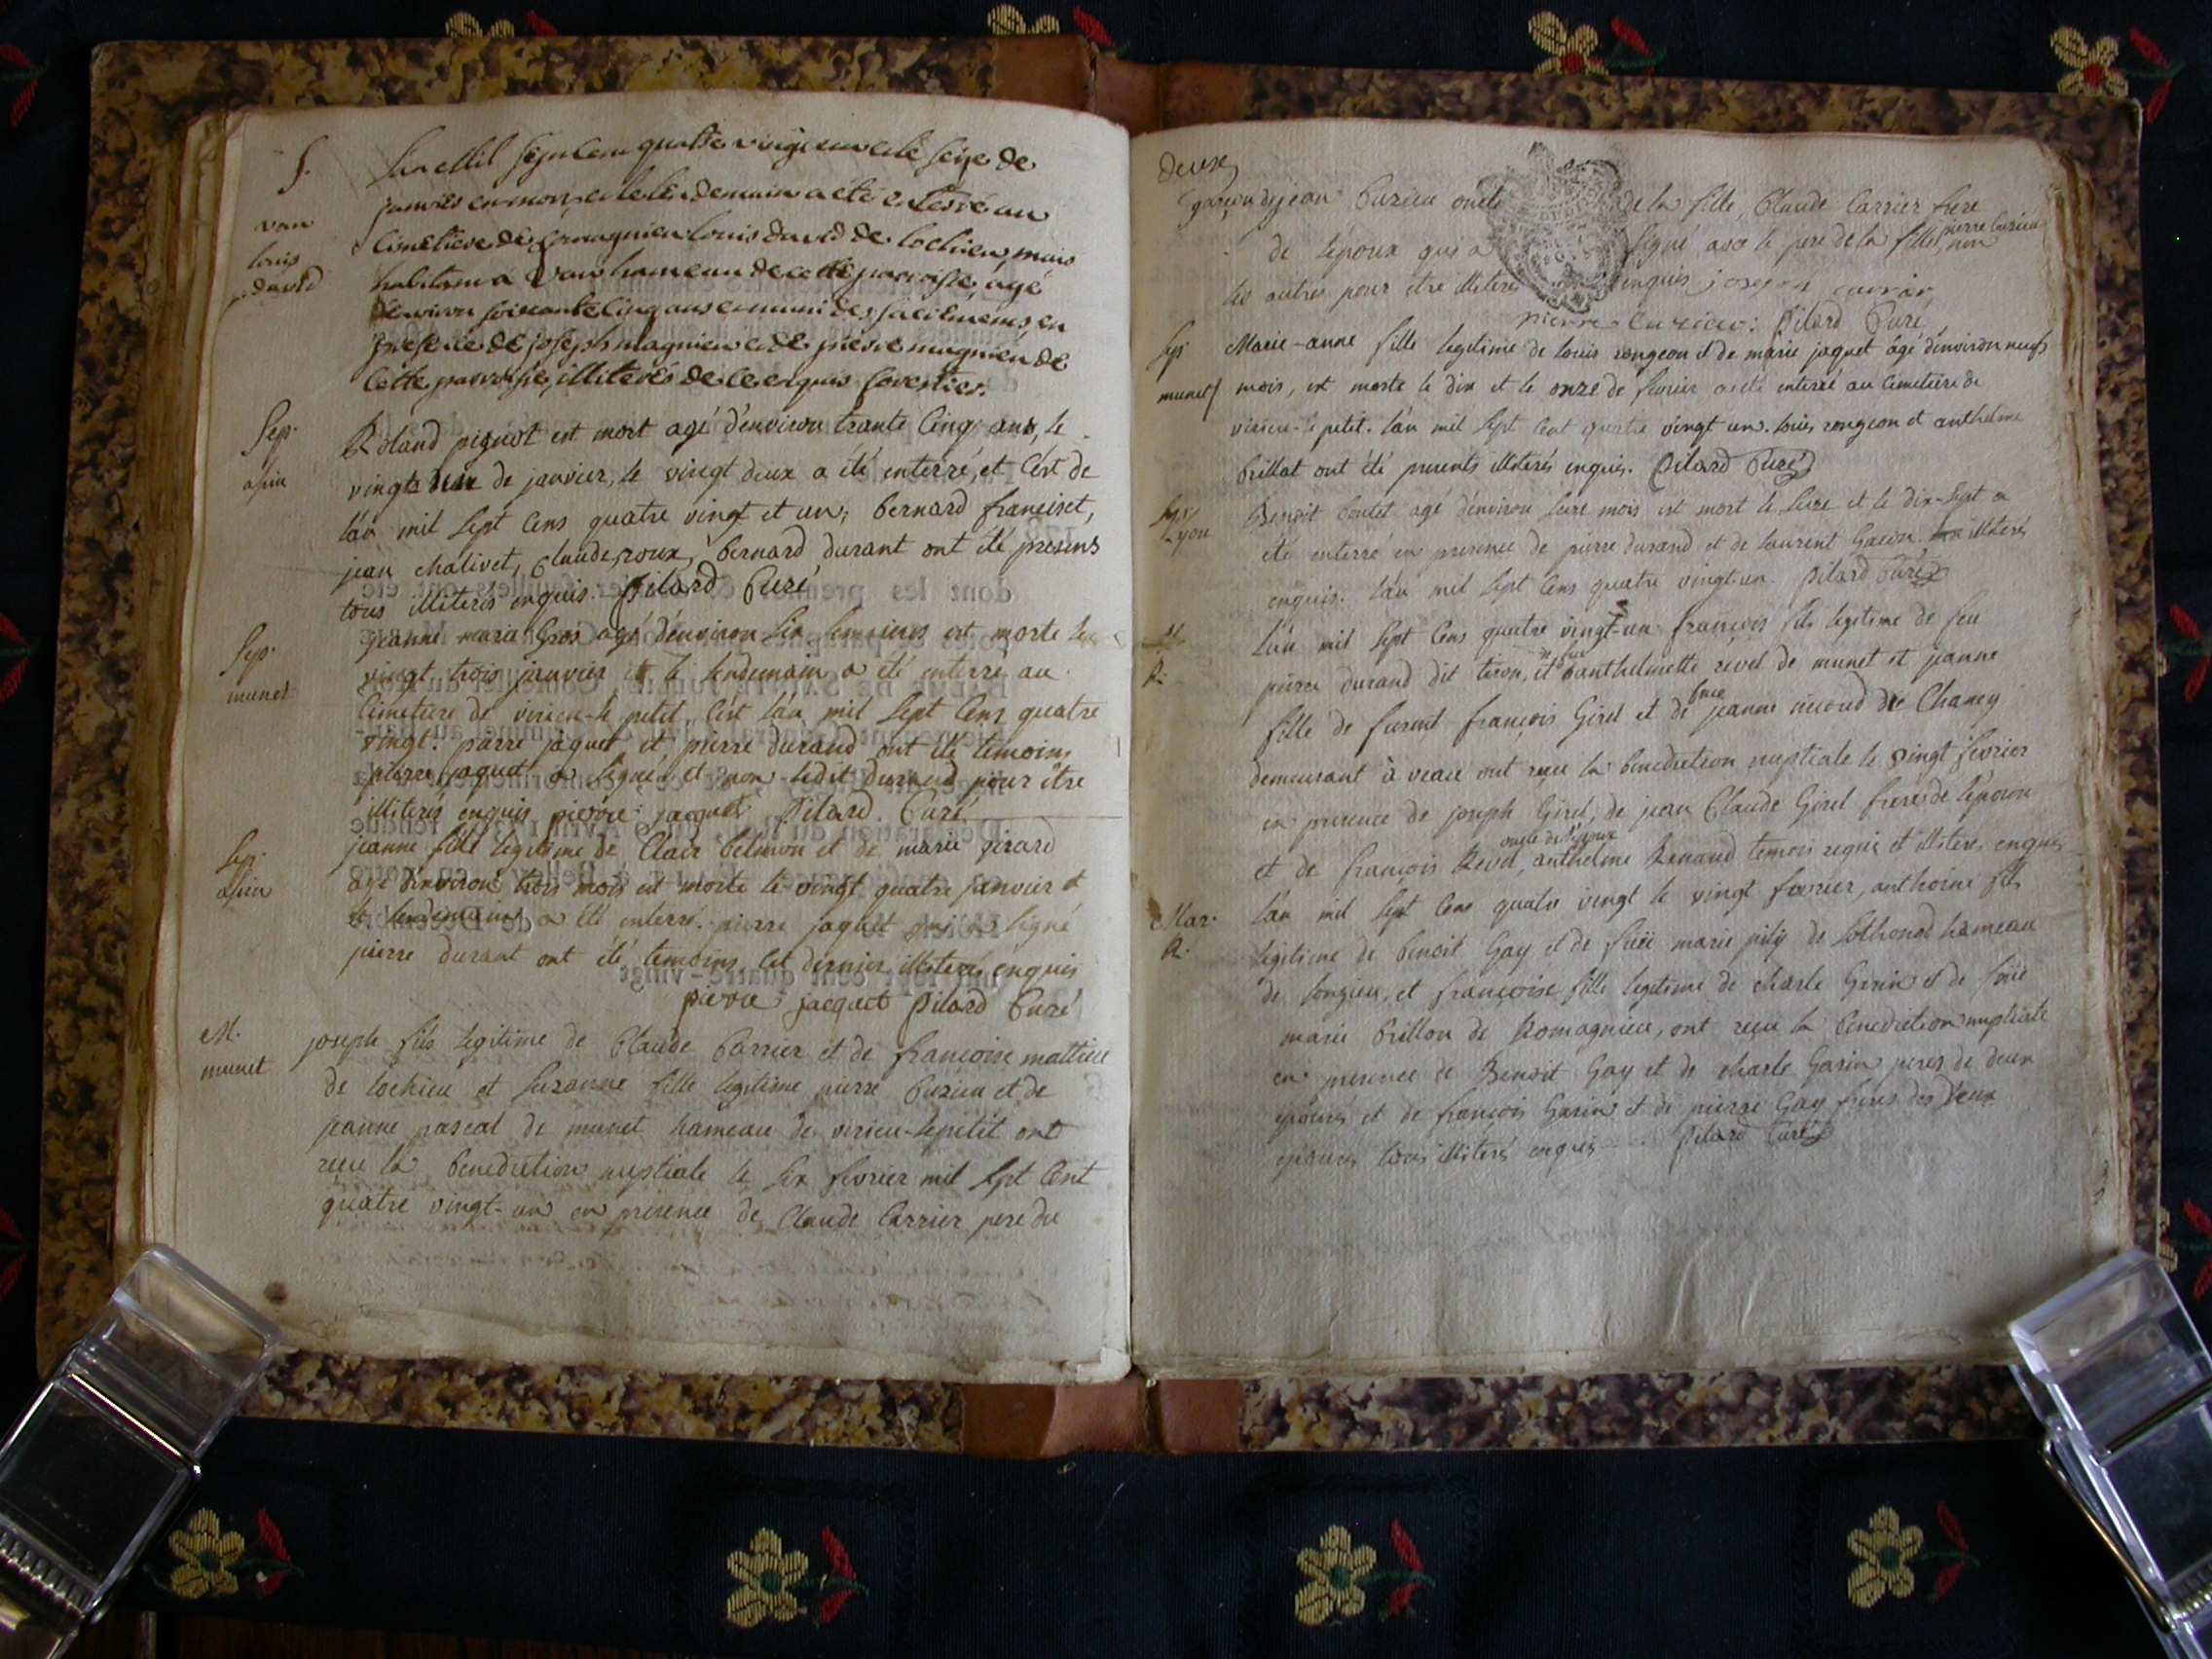 S.
vau
louis
david
L'an mil sept cent quatre vingt un et le seize de
janvier en mort, et le lendemain a été enterré au
cimetiere de Romagnieu louis david de lochieu, mais
habitant a Vau hameau de cette parroisse, agé
d'environ soixante cinq ans et muni des sacremens, en
presence de joseph magnien et de pierre magnien de
cette parroisse, illiterés de ce enquis
Sep.
asin
Roland pignot est mort agé d'environ trante cinq ans, le
vingt deux de janvier, le vingt deux a été enterré, et c'est de
l'an mil sept cens quatre vingt et un; bernard franciset,
jean chalivet, claude roux, bernard durant ont été presens
tous illiterés enquis. Pilard Curé
Sep.
munet
jeanne marie Gros agé d'environ six semaines est morte le
vingt trois janvier et le lendemain a été enterré au
cimetiere de virieu-le petit, c'est l'an mil sept cens quatre
vingt. pierre jaquet et pierre durand ont été temoins
pierre jaquet a signé et non ledit durand pour être
illiterés enquis pierre jacquet Pilard. Curé.
Sep.
asin
jeanne fille legitime de Clair belmon et de marie girard
agé d'environ trois mois est morte le vingt quatre janvier et
le lendemain a été enterré. pierre jaquet qui a signé
pierre durant ont été temoins cet dernier illiterés enquis
pierre jacquet Pilard Curé
M.
munet
joseph fils legitime de Claude Carrier et de francoise mattieu
de lochieu et suzanne fille legitime pierre Cuzieu et de
jeanne pascal de munet hameau de virieu-lepetit ont
reçu la benediction nuptiale le six fevrier mil sept Cent
quatre vingt-un en presence de Claude Carrier pere du
deuxe
garçon de jean Cuzieu oncle de la fille, Claude Carrier frere
de l'epoux qui a signé avec le pere de la fille pierre cuzieu, non
les autres pour etre illiterés enquis joseph carrier
pierre Cuzieu: Pilard Curé
Sep.
munet
Marie-anne fille legitime de louis rongeon et de marie jaquet âgé d'environ neuf
mois, est morte le dix et le onze de fevrier a été enterré au cimetiere de
virieu-le petit. l'an mil sept Cent quatre vingt un. louis rongeon et anthelme
brillat ont été presents illiterés enquis. Pilard Curé
Sep.
Lyon
Benoit boutet agé d'environ seize mois est mort le seize et le dix-sept a
été enterré en presence de pierre durand et de laurent Gacon. illiterés
enquis. l'an mil sept Cens quatre vingt-un. Pilard Curé
M.
R.
L'an mil sept Cens quatre vingt-un françois fils legitime de feu
pierre durand dit teron, et anthelmette revel de munet et jeanne
fille de furent françois Girel et de feue jeanne nicoud de Chaney
demeurant à veau ont reçu la benediction nuptiale le vingt fevrier
en presence de joseph Girel, de jean Claude Girel freres de l'epouse
et de françois Revel, oncle de l'epoux anthelme Renaud temois requis et illiteres enquis
Mar.
R.
L'an mil sept Cens quatre vingt le vingt fevrier, anthoine fils
legitime de benoit Gay et de feüe marie de sothonod hameau
de songieu, et françoise fille legitime de charle Garin et de feüe
marie brillon de Romagnieu, ont reçu la benediction nuptiale
en presence de Benoit Gay et de charle Garin peres de deux
epoux et de françois Garin et de pierre Gay freres des deux
epoux tous illiterés enquis Pilard Curé